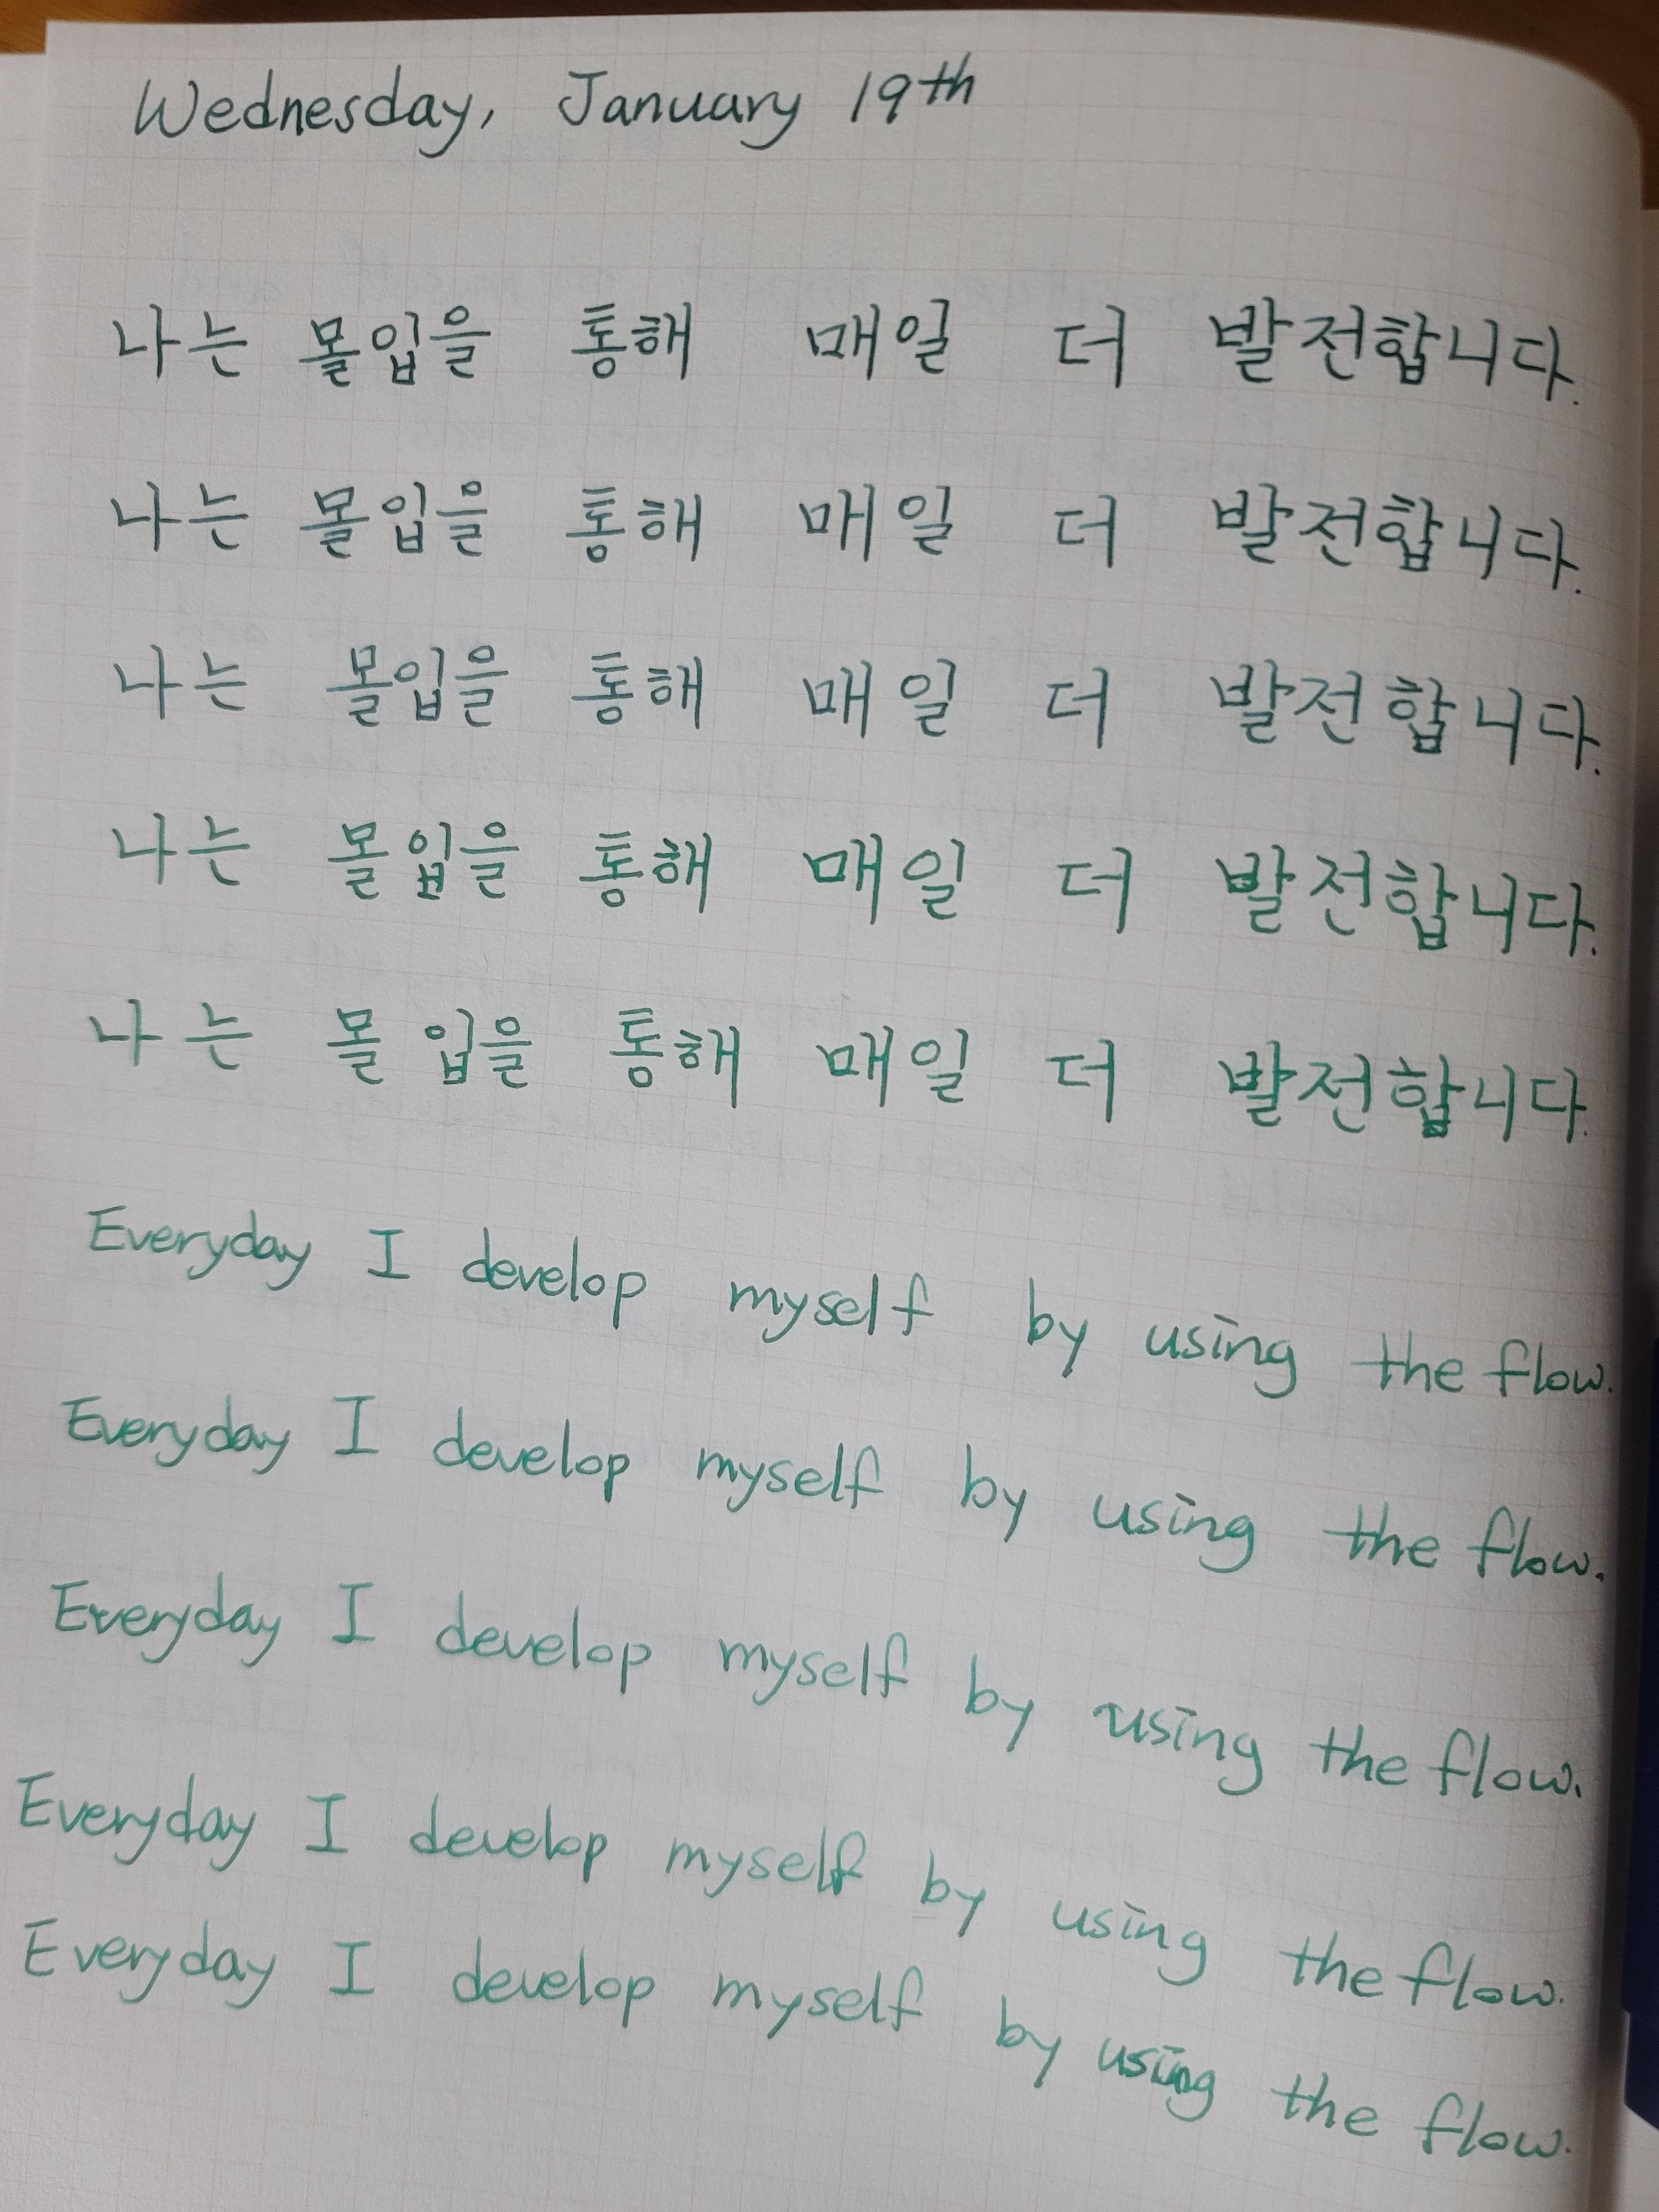 Wednesday, January 19th
나는 몰입을 통해 매일 더 발전합니다.
나는 몰입을 통해 매일 더 발전합니다.
나는 몰입을 통해 매일 더 발전합니다.
나는 몰입을 통해 매일 더 발전합니다.
나는 몰입을 통해 매일 더 발전합니다.
Everyday I develop myself by using the flow.
Everyday I develop myself by using the flow.
Everyday I develop myself by using the flow.
Everyday I develop myself by using the flow.
Everyday I develop myself by using the flow.